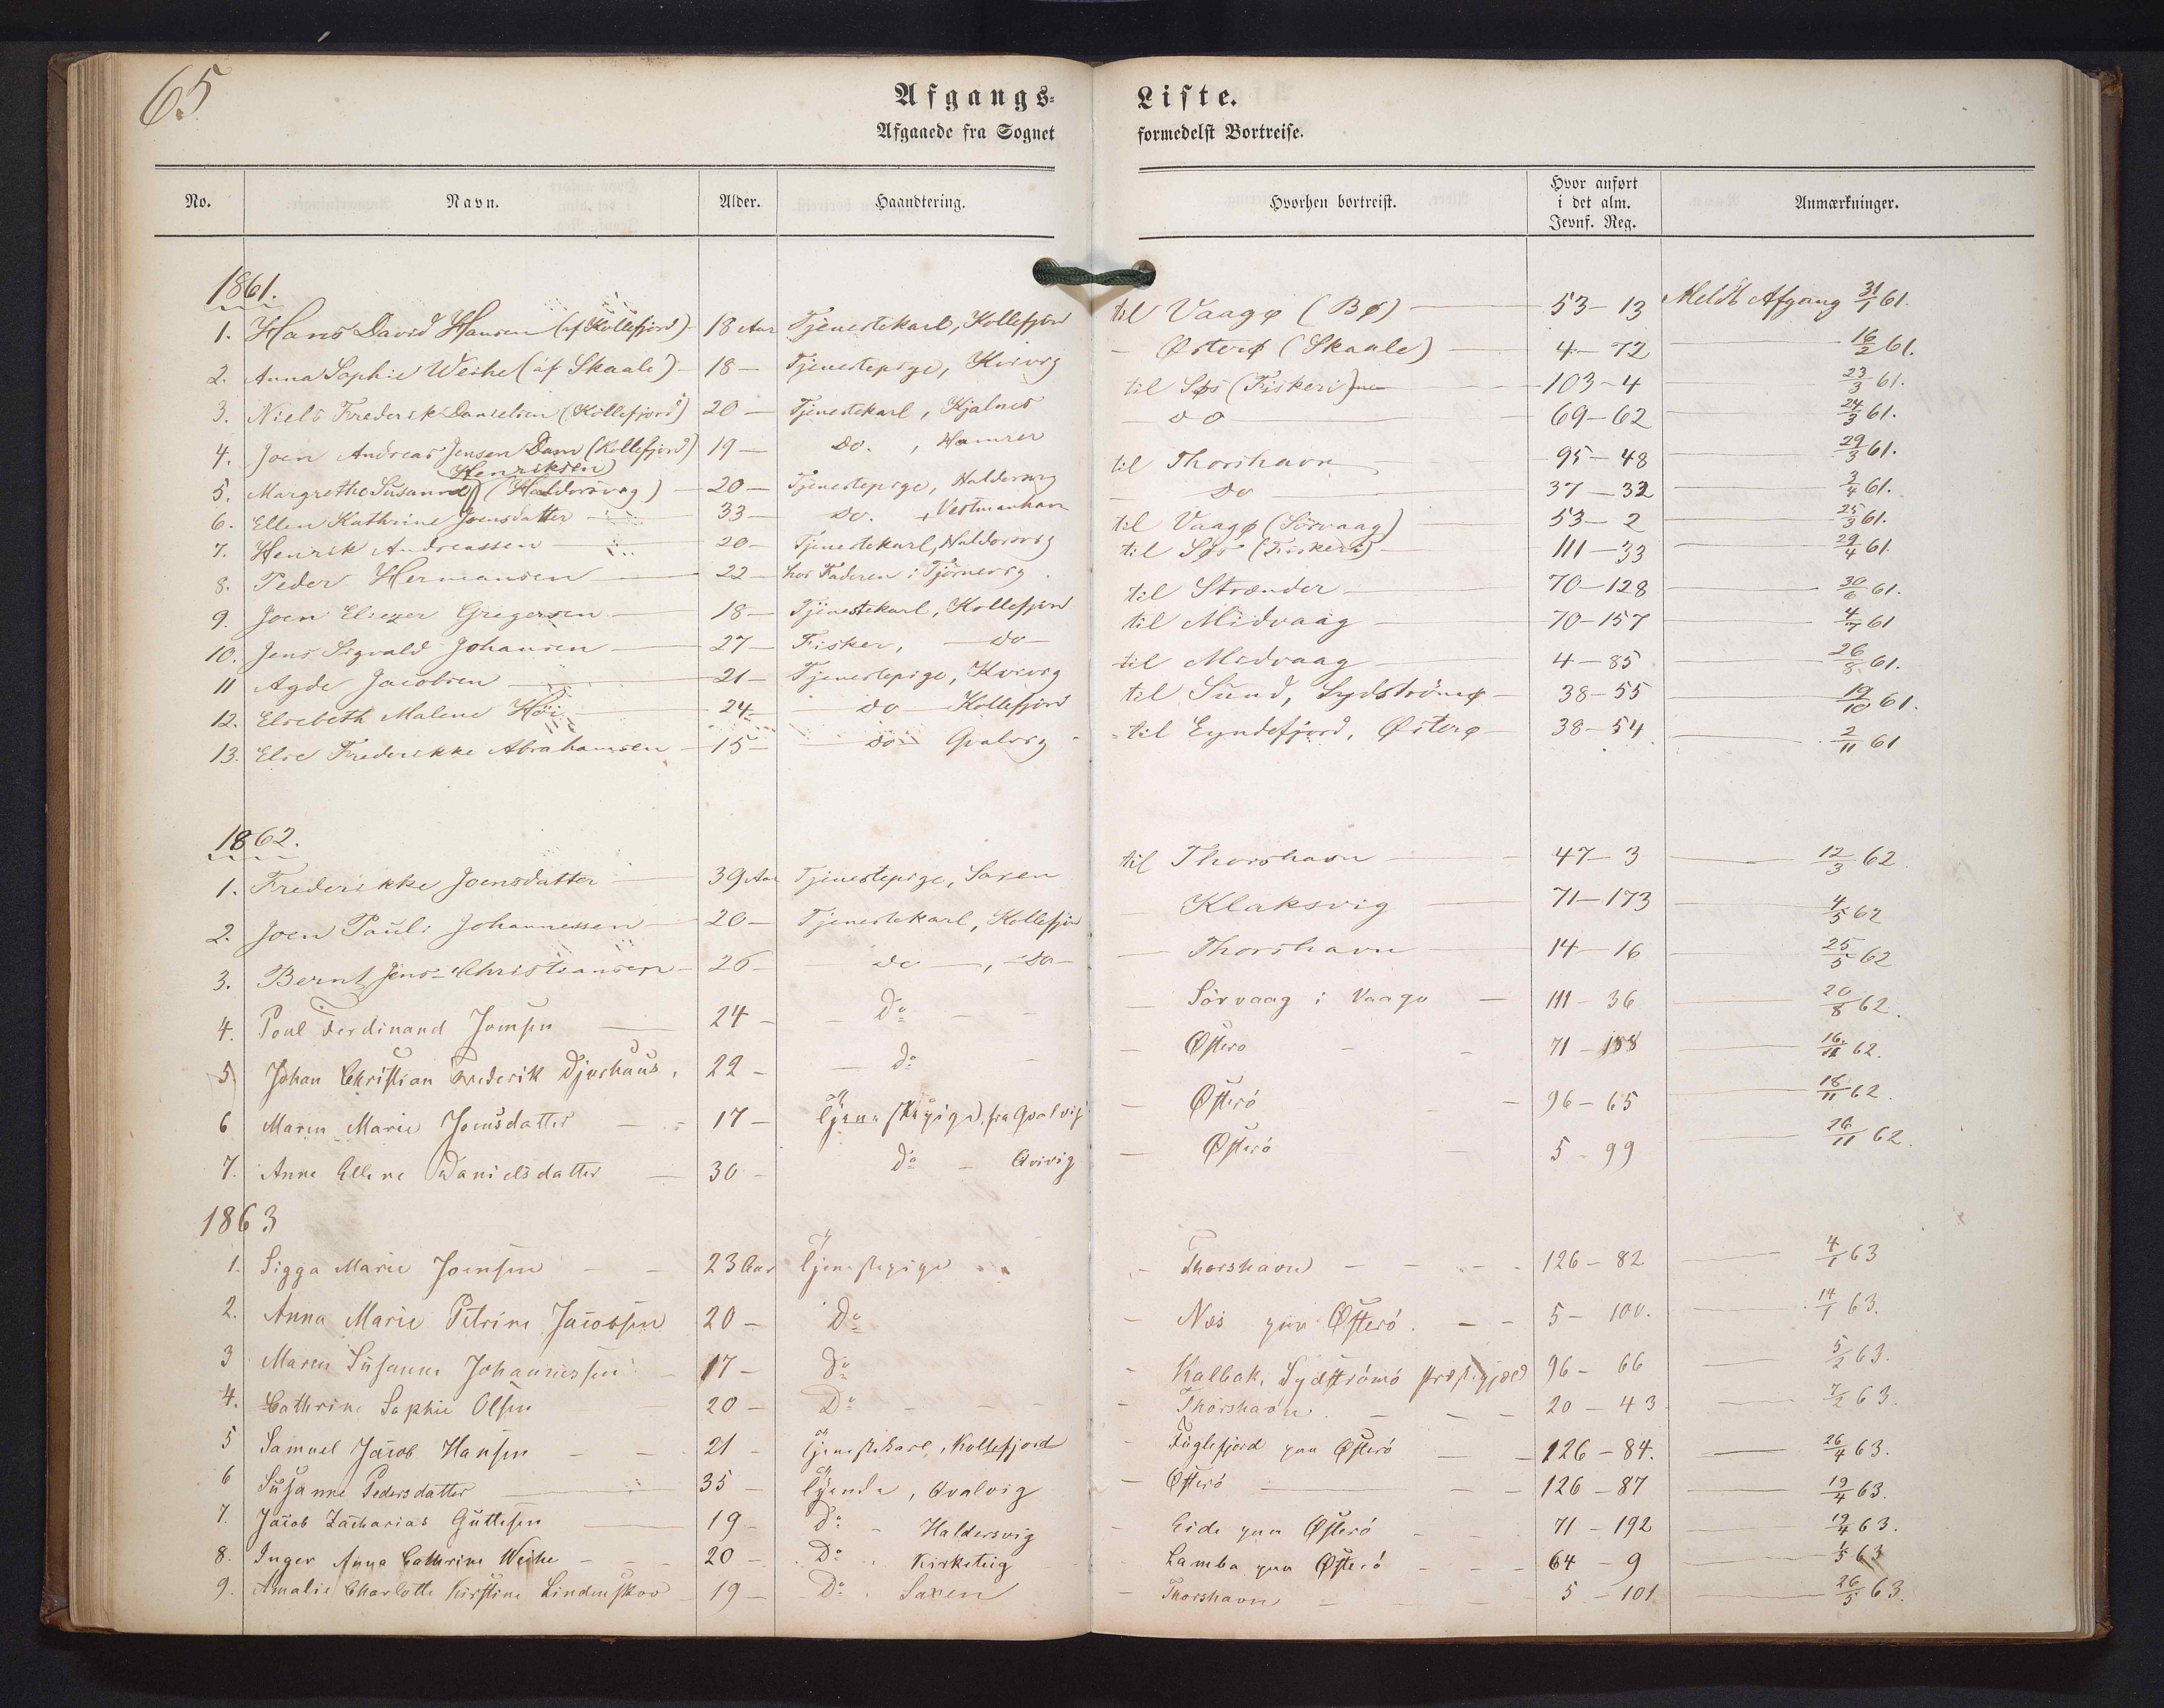 65
Afgangs- Liste.
Afgaaede fra Sognet formedelst Bortreise.
No. Navn. Alder. Haandtering. Hvorhen bortreist. Hvor anført i det alm. Jevnf. Reg. Anmærkninger.
1861.
1. Hans David Hansen (af Kollefjord) 18 Aar Tjenestekarl, Kollefjord til Vaagø (Bø) 53-13 Meldt Afgang 31/1 61.
2. Anna Sophie Weihe (af Skaale) 18 Tjenestepige, Kvivig Østerø (Skaale) 4-72 16/2 61.
3. Niels Frederik Danielsen (Kollefjord) 20 Tjenestekarl, Hjalnes til Søs (Fiskeri) 103-4 23/3 61.
4. Joen Andreas Jensen Dam (Kollefjord) 19 do. , do 69-62 24/3 61.
Henriksen
5. Margrethe Susanne (Haldorsvig) 20 Tjenestepige, Haldorsvig til Thorshavn 95-48 29/3 61.
6. Ellen Kathrine Joensdatter 33 do. , Vestmanhavn do 37-32 3/4 61.
7. Henrik Andreassen 20 Tjenestekarl, Haldorsvig til Vaagø (Sörvaag) 53-2 25/3 61.
8. Peder Hermansen 22 hos Faderen i Tjörnevig til Søs (Fiskeri) 111-33 29/4 61.
9. Joen Eliezer Gregersen 18 Tjenestekarl, Kollefjord til Strænder 70-128 30/6 61.
10. Jens Sigvald Johansen 27 Fisker, do til Midvaag 70-157 4/7 61
11 Agde Jacobsen 21 Tjenestepige, Kvivig til Midvaag 4-85 26/8 61.
12. Elsebeth Malene Höi 24 do Kollefjord til Sund, Sydströmø 38-55 19/10 61.
13. Else Frederikke Abrahamsen 15 do Qvalvig til Eyndefjord, Østerø 38-54 2/11 61
1862.
1. Frederikke Joensdatter 39 Aar Tjenestepige, Saxen til Thorshavn 47-3 12/3 62
2. Joen Pauli Johannessen 20 Tjenestekarl, Kollefjord Klaksvig 71-173 4/5 62
3. Bernt Jens Christiansen 26 do , do Thorshavn 14-16 25/5 62
4. Poul Ferdinand Joensen 24 Do Sörvaag i Vaagø 111-36 20/8 62.
5 Johan Christian Frederik Djurhuus. 22 do Østerø 71- 16/11 62.
6 Maren Marie Joensdatter 17 Tjenestepige, fra Qvalvig Østerö 96-65 18/11 62.
7. Anne Ellene Danielsdatter 30 Do Qvivig Østerö 5-99 26/11 62.
1863
1. Sigga Marie Joensen 23 Aar Tjenestepige Thorshavn 126-82 4/1 63
2. Anna Marie Petrine Jacobsen 20 Do Næs paa Østerö 5-100. 14/1 63.
3 Maren Susanne Johannessen 17 Do Kalbak, Sydströmö Præstegjæld 96-66 5/2 63.
4. Cathrine Sophie Olsen 20 Do Thorshavn 20-43 7/2 63.
5 Samuel Jacob Hansen 21 Tjenestekarl, Kollefjord Fuglefjord paa Østerö 126-84. 26/4 63.
6 Susanne Pedersdatter 35 Tyende, Qvalvig Østerö 126-87 19/4 63.
7. Jacob Zacharias Guttesen 19 Do Haldersvig Eide paa Østerö 71-192 19/4 63.
8. Inger Anna Cathrine Weihe 20 Do Lamba paa Østerö 64-9 1/5 63
9. Amalie Charlotte Kirstine Lindenskov 19 Do Saxen Thorshavn 5-101 26/5 63.